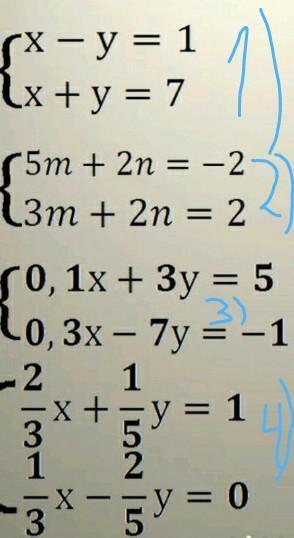 x − y = 1
x + y = 7
1)
5m + 2n = −2
3m + 2n = 2
2)
0,1x + 3y = 5
0,3x − 7y = −1
3)
2/3 x + 1/5 y = 1
1/3 x − 2/5 y = 0
4)